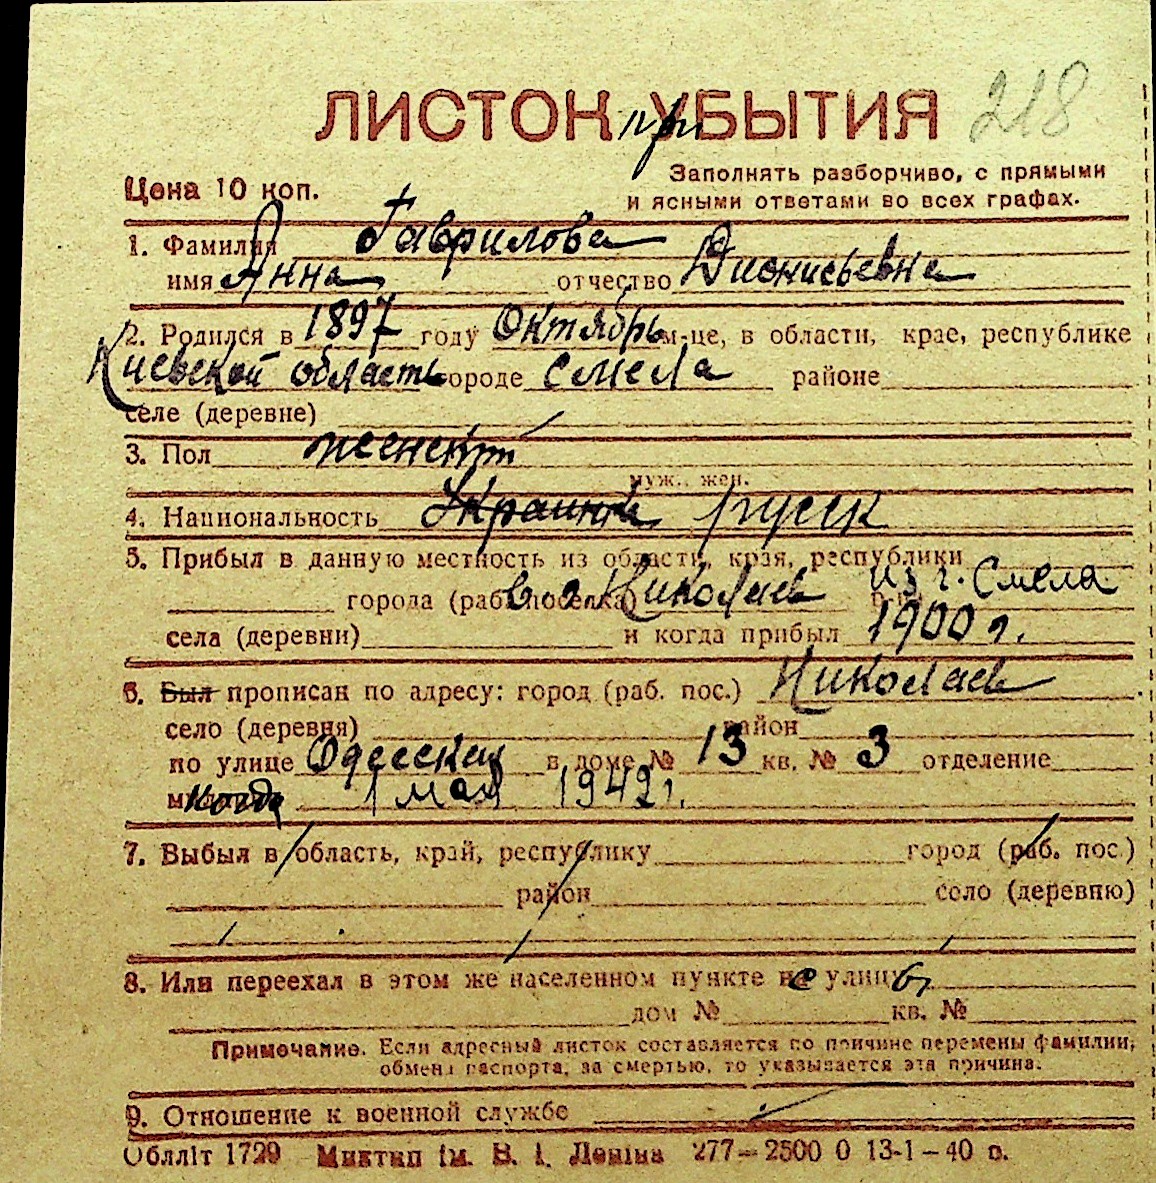 ЛИСТОК при УБЫТИЯ 218
Цена 10 коп.
Заполнять разборчиво, с прямыми
и ясными ответами во всех графах.
1. Фамилия Гаврилова
имя Анна отчество Дионисьевна
2. Родился в 1897 году Октябрь м-це, в области, крае, республике
Киевской область городе Смела районе
селе (деревне)
3. Пол женский
муж., жен.
4. Национальность Украинка русск
5. Прибыл в данную местность из области, края, республики
города (раб. поселка) в г. Николаев из г. Смела
села (деревни) и когда прибыл 1900 г.
6. Был прописан по адресу: город (раб. пос.) Николаев
село (деревня) район
по улице Одесская в доме № 13 кв. № 3 отделение
когда 1 мая 1942 г.
7. Выбыл в область, край, республику город (раб. пос.)
район село (деревню)
8. Или переехал в этом же населенном пункте улицу
дом № кв. №
Примечание. Если адресный листок составляется по причине перемены фамилии,
обмена паспорта, за смертью, то указывается эта причина.
9. Отношение к военной службе
Обллiт 1729 Миктип iм. В. I. Ленiна 277—2500 0 13-1-40 р.